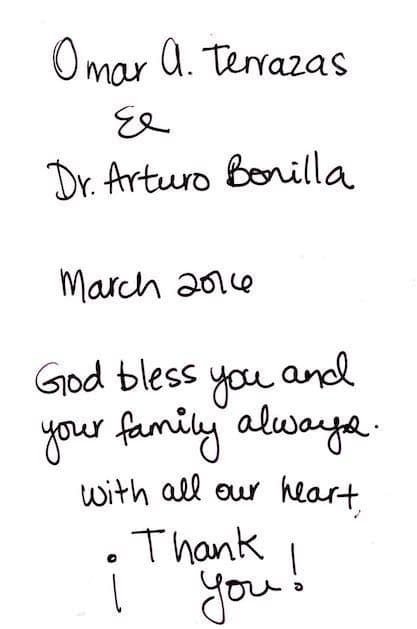 Omar A. Terrazas
&
Dr. Arturo Bonilla
March 2016
God bless you and
your family always.
with all our heart,
¡ Thank
you!